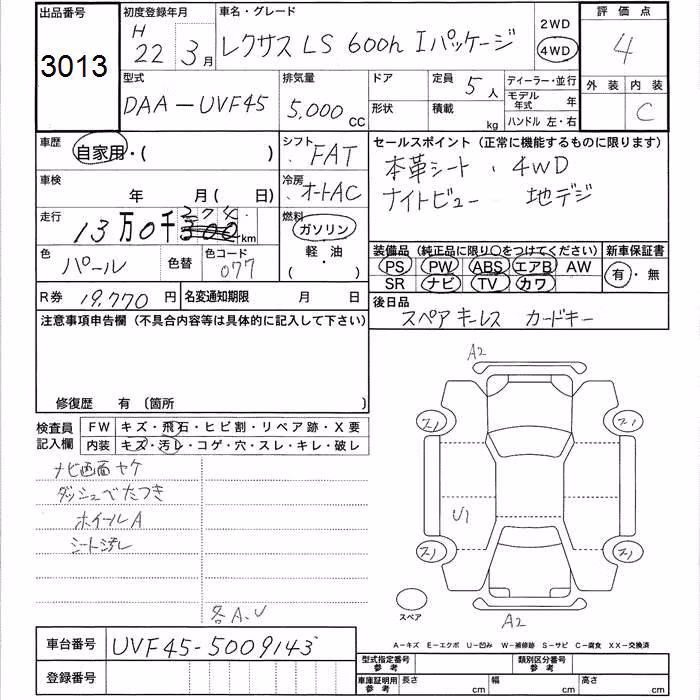 出品番号 3013
初度登録年月 H 22 3月
車名・グレード レクサス LS 600h Iパッケージ
2WD 4WD
評価点 4
外装 内装 C
型式 DAA-UVF45
排気量 5,000 CC
ドア 形状
定員 5 人
積載 kg
ディーラー・並行
モデル年式 年
ハンドル 左・右
車歴 自家用・( )
シフト FAT
セールスポイント (正常に機能するものに限ります)
本革シート、4WD
ナイトビュー 地デジ
車検 年 月 ( 日)
冷房 オートAC
走行 13万0千374 300 km
燃料 ガソリン 軽・油 ・( )
色 パール 色替 色コード 077
装備品 (純正品に限り○をつけてください)
PS PW ABS エアB AW
SR ナビ TV カワ
新車保証書 有・無
R券 19,770 円
名変通知期限 月 日
後日品
スペアキーレス カードキー
注意事項申告欄 (不具合内容等は具体的に記入して下さい)
修復歴 有 〔箇所 〕
検査員記入欄
FW キズ・飛石・ヒビ割・リペア跡・X要
内装 キズ・汚レ・コゲ・穴・スレ・キレ・破レ
ナビ画面ヤケ
ダッシュべたつき
ホイールA
シート汚レ
各A.U
A2
スノ スノ
U1
スノ スノ
スペア
A2
A-キズ E-エクボ U-凹み W-補修跡 S-サビ C-腐食 XX-交換済
車台番号 UVF45-5009143
登録番号
型式指定番号 参考 類別区分番号 参考
車庫証明用 参考 長さ cm 幅 cm 高さ cm